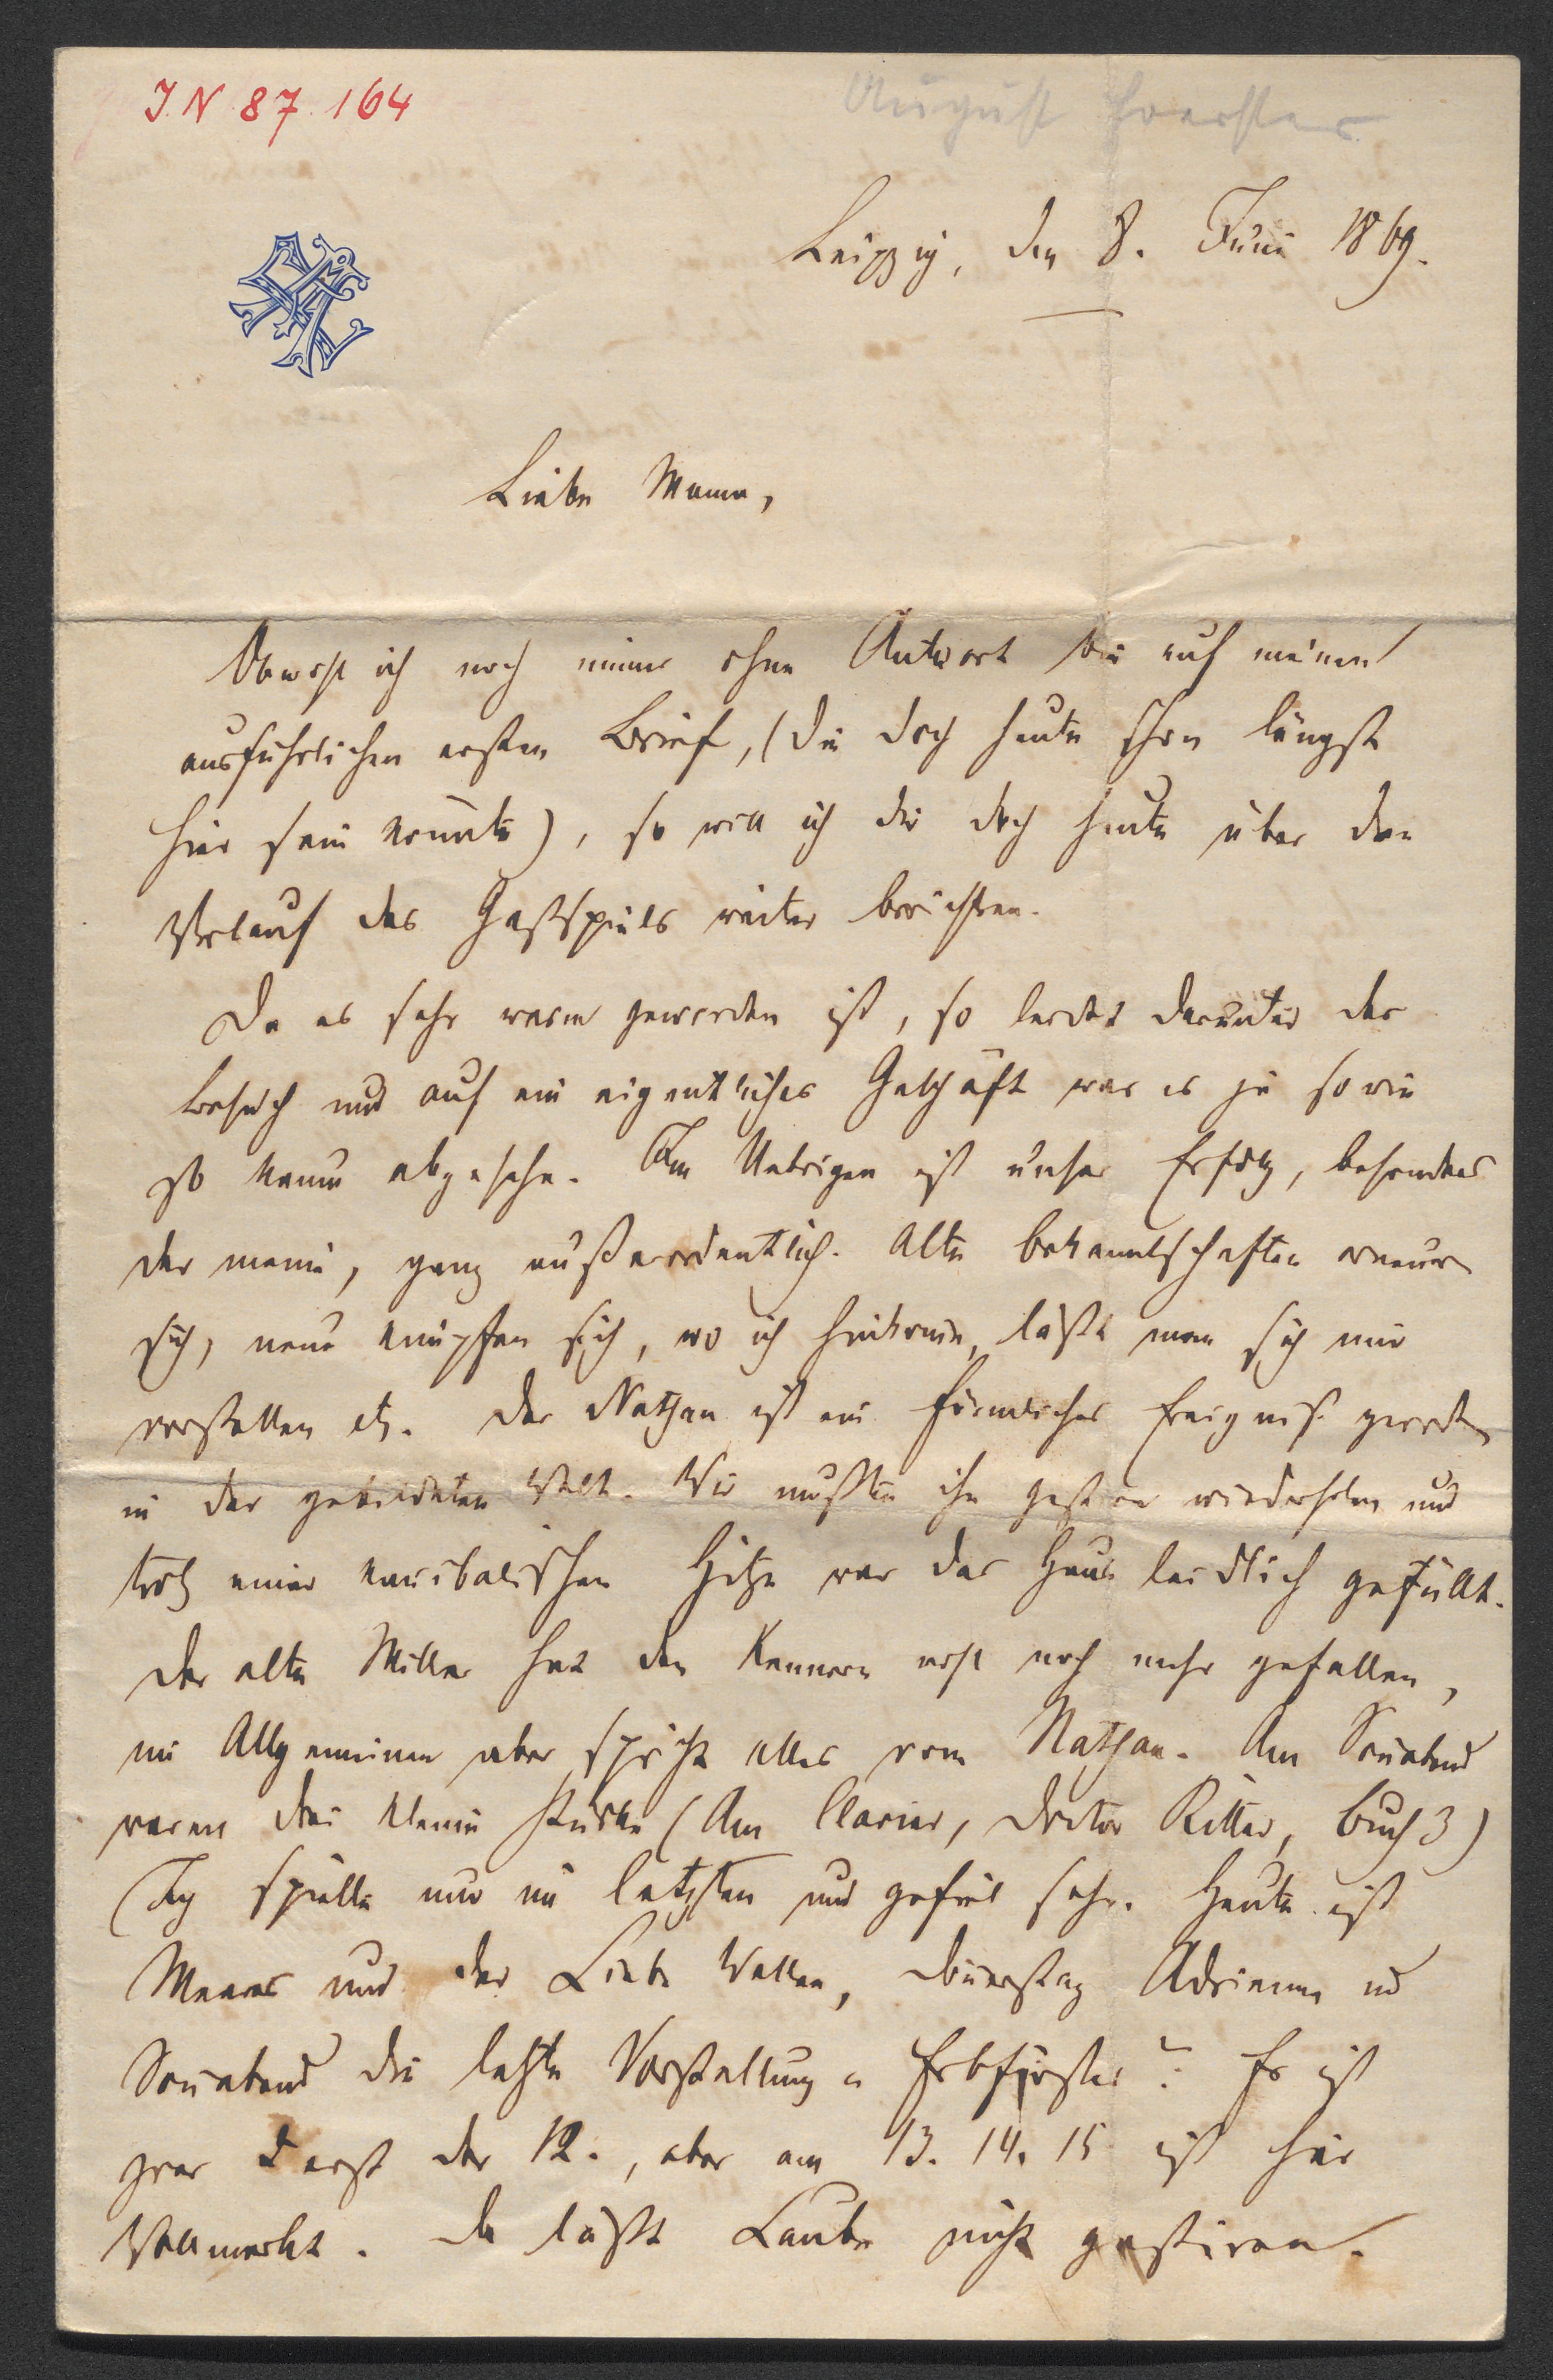 I.N 87.164
August Foerster
Leipzig, den 8. Juni 1869.
Liebe Mama,
Obwohl ich noch immer ohne Antwort bin auf meinen
ausführlichen ersten Brief, (die doch heute schon längst
hier sein könnte), so will ich dir doch heute über den
Verlauf des Gastspiels weiter berichten.
Da es sehr warm geworden ist, so leidet darunter der
Besuch und auf ein eigentliches Geschäft war es ja so wie
so kaum abgesehn. Im Uebrigen ist unser Erfolg, besonders
der meine, ganz außerordentlich. Alte Bekanntschaften erneuern
sich, neue knüpfen sich, wo ich hinkomme, läßt man sich mir
vorstellen etc. Der Nathan ist ein förmliches Ereigniß geworden
in der gebildeten Welt. Wir mußten ihn gestern wiederholen und
trotz einer kannibalischen Hitze war das Haus leidlich gefüllt.
Der alte Miller hat den Kennern erst noch mehr gefallen,
im Allgemeinen aber spricht alles vom Nathan. Am Sonnabend
waren drei kleine Stücke (Am Clavier, Doctor Ritter, Buch 3)
Ich spielte nur im letzten und gefiel sehr. Heute ist
Meeres und der Liebe Wellen, Donnerstag Adrienne und
Sonnabend die letzte Vorstellung Erbförster? Es ist
zwar erst der 12., aber am 13. 14. 15 ist hier
Wollmarkt. Da läßt Laube nicht gastiren.